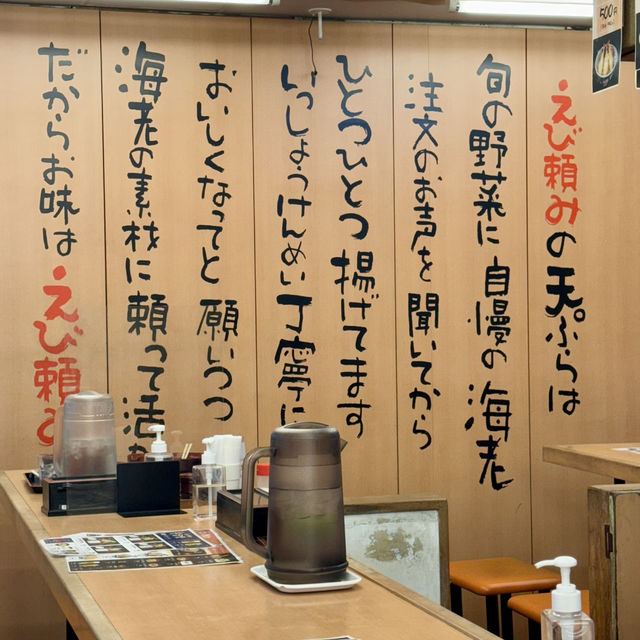 えび頼みの天ぷらは
旬の野菜に 自慢の 海老
注文のお声を 聞いてから
ひとつひとつ 揚げてます
いっしょうけんめい 丁寧に
おいしくなってと 願いつつ
海老の素材に 頼って活
だからお味は えび頼み
500円